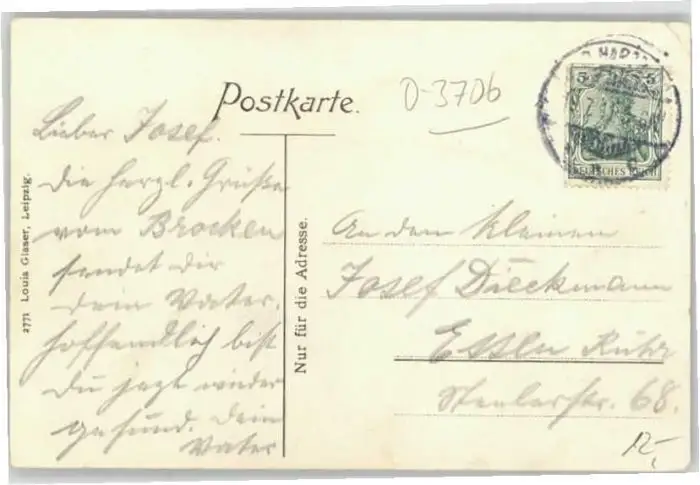 Postkarte.
0-3706
5 5
DEUTSCHES REICH
Lieber Josef.
Die herzl. Grüße
vom Brocken
sendet dir
dein Vater.
hoffendlich bist
du jezt wieder
gesund. Dein
Vater
2771 Louis Glaser, Leipzig.
Nur für die Adresse.
An den kleinen
Josef Dieckmann
Essen Ruhr
68.
12,-